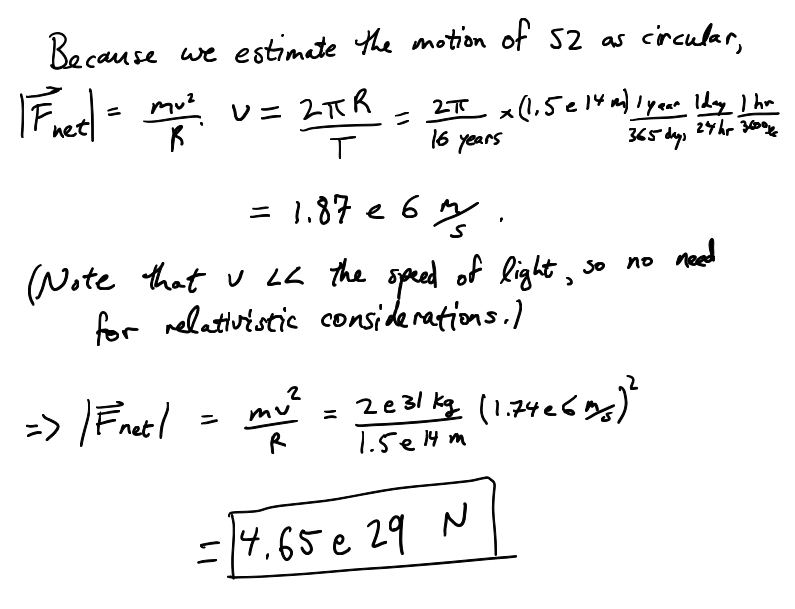 Because we estimate the motion of S2 as circular,
|F⃗net| = mv²/R. v = 2πR/T = 2π/16 years × (1.5 e 14 m) 1 year/365 days 1 day/24 hr 1 hr/3600 s
= 1.87 e 6 m/s.
(Note that v << the speed of light, so no need
for relativistic considerations.)
=> |F⃗net| = mv²/R = 2 e 31 kg/1.5 e 14 m (1.74 e 6 m/s)²
= 4.65 e 29 N